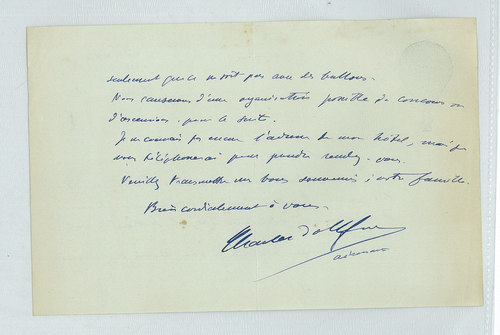 seulement que ce ne soit pas avec des ballons.
Nous causerons d'une organisation possible de concours ou
d'ascensions pour la suite.
Je ne connais pas encore l'adresse de mon hôtel, mais je
vous téléphonerai pour prendre rendez-vous.
Veuillez transmettre mes bons souvenirs à votre famille.
Bien cordialement à vous.
Charles Dollfus
aéronaute